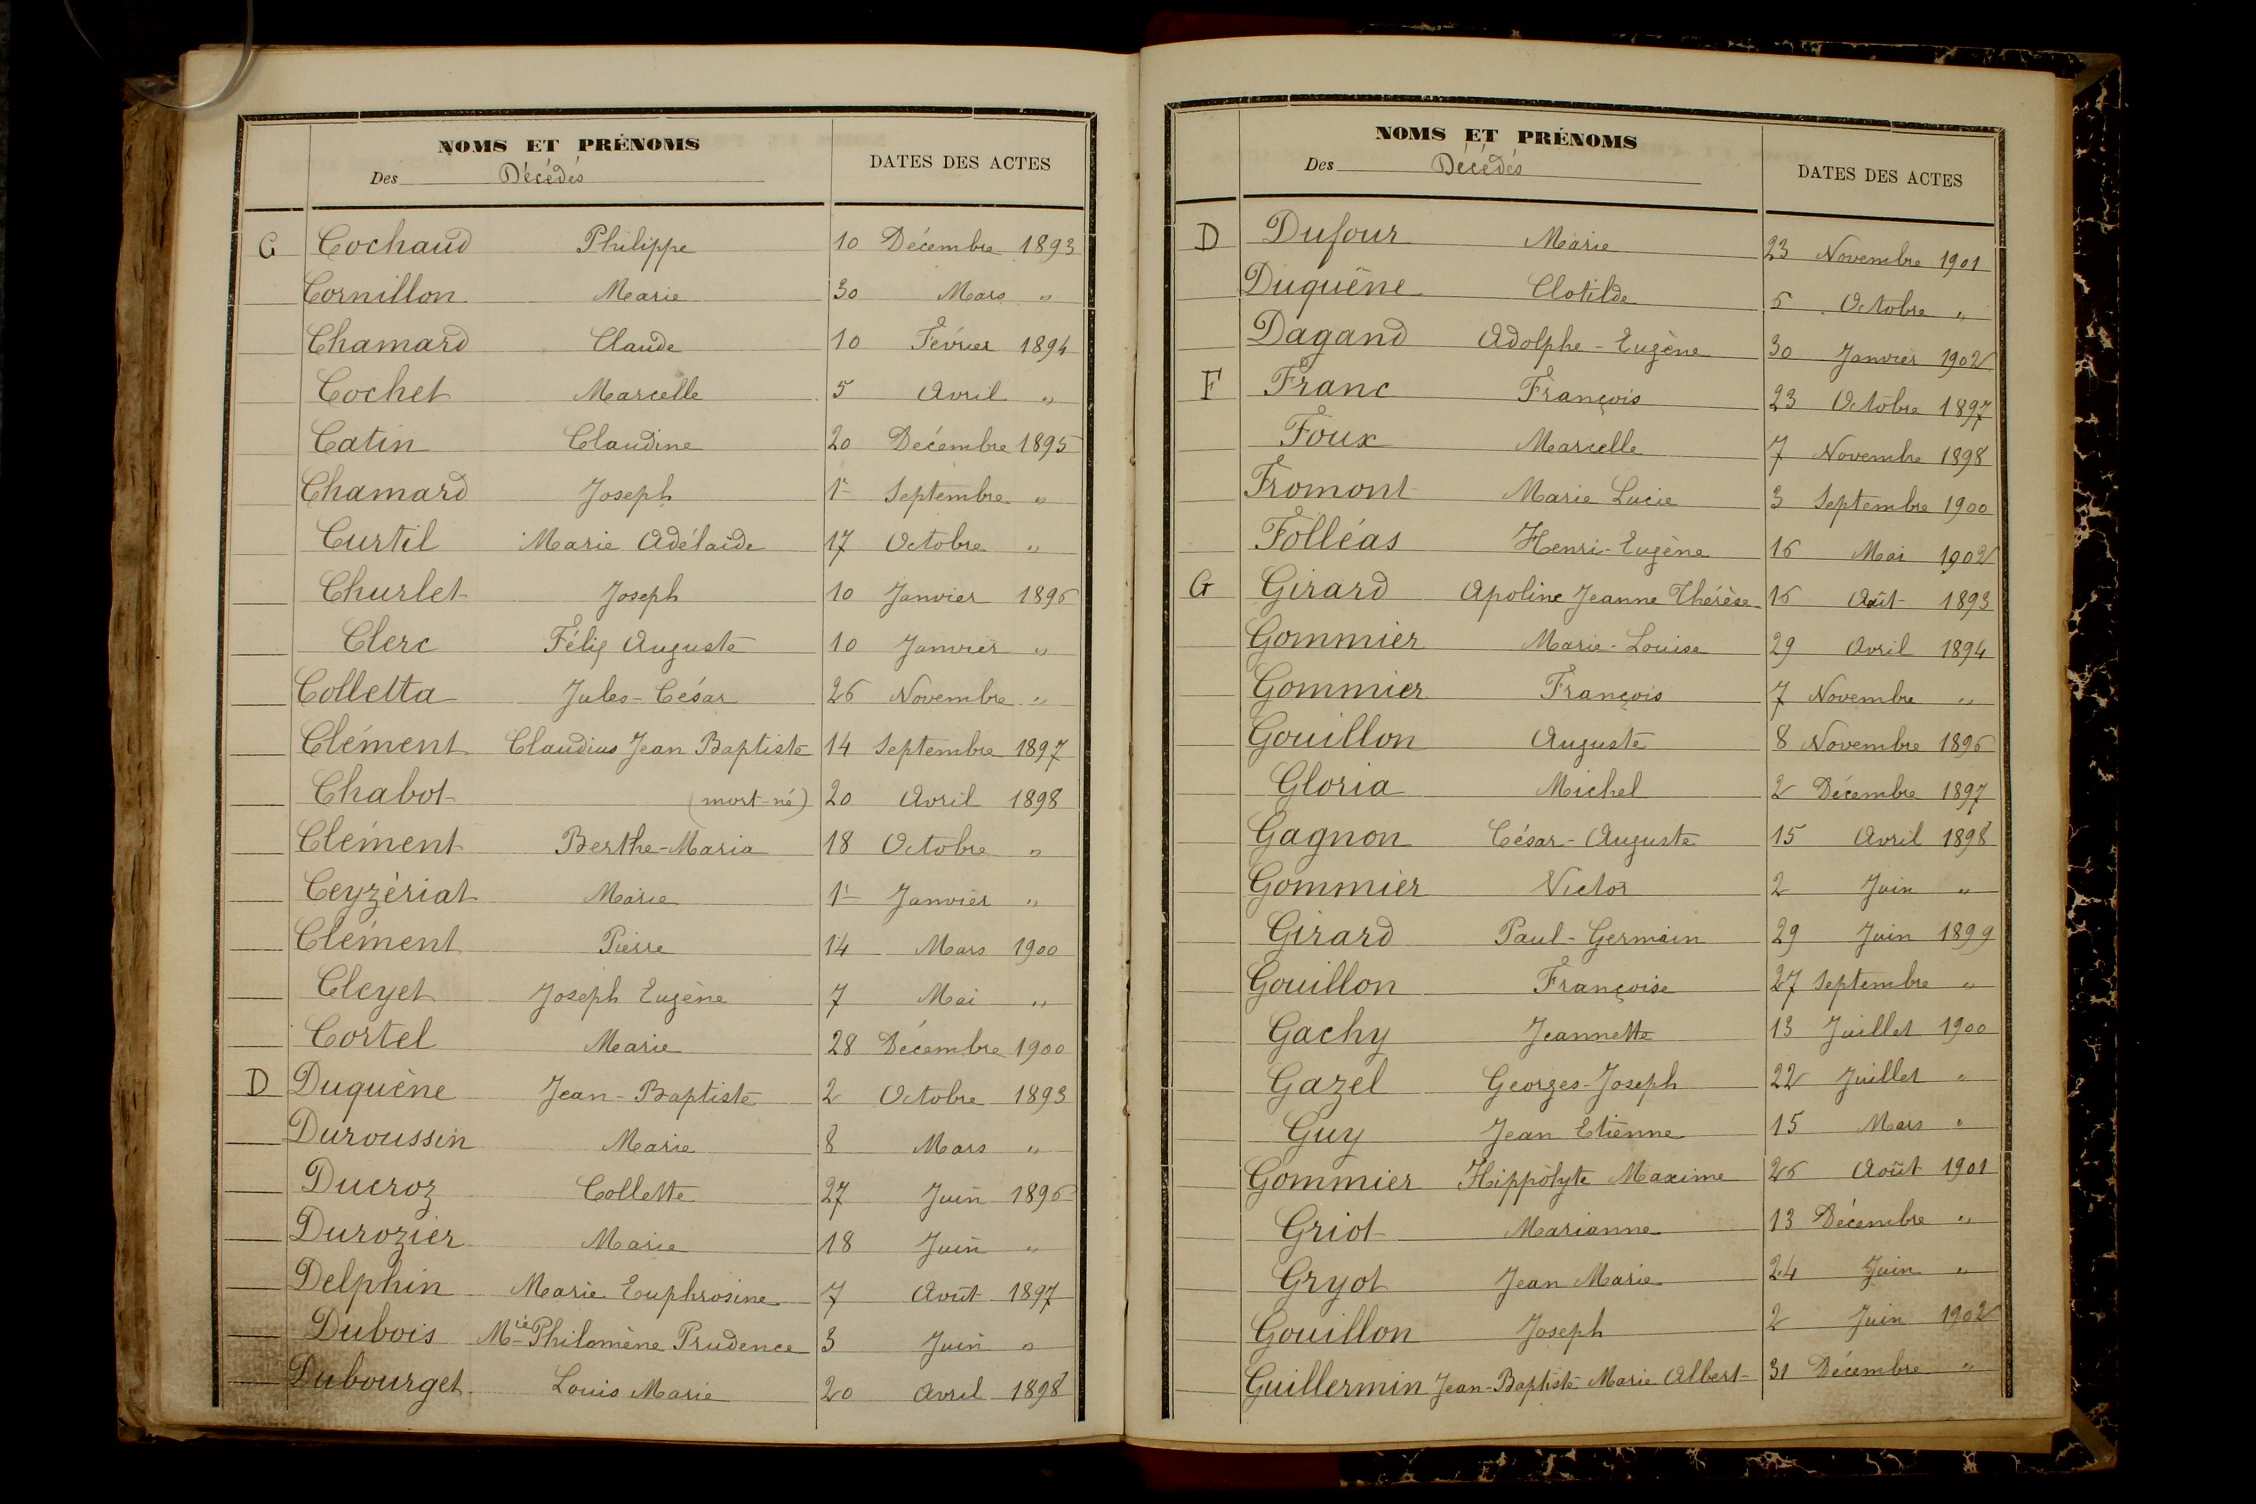 NOMS ET PRÉNOMS
Des Décédés
DATES DES ACTES
C Cochaud Philippe 10 Décembre 1893
Cornillon Marie 30 Mars "
Chamard Claude 10 Février 1894
Cochet Marcelle 5 Avril "
Catin Claudine 20 Décembre 1895
Chamard Joseph 1er Septembre "
Curtil Marie Adélaïde 17 Octobre "
Churlet Joseph 10 Janvier 1896
Clerc Félix Auguste 10 Janvier "
Colletta Jules-César 26 Novembre "
Clément Claudius Jean Baptiste 14 Septembre 1897
Chabot (mort-né) 20 Avril 1898
Clément Berthe-Maria 18 Octobre "
Ceyzériat Marie 1er Janvier "
Clément Pierre 14 Mars 1900
Cleyet Joseph Eugène 7 Mai "
Cortel Marie 28 Décembre 1900
D Duquène Jean-Baptiste 2 Octobre 1893
Duroussin Marie 8 Mars "
Ducroz Collette 27 Juin 1896
Durozier Marie 18 Juin "
Delphin Marie Euphrosine 7 Août 1897
Dubois Mie Philomène Prudence 3 Juin "
Dubourget Louis Marie 20 Avril 1898
NOMS ET PRÉNOMS
Des Décédés
DATES DES ACTES
D Dufour Marie 23 Novembre 1901
Duquêne Clotilde 6 Octobre "
Dagand Adolphe-Eugène 30 Janvier 1902
F Franc François 23 Octobre 1897
Foux Marcelle 7 Novembre 1898
Fromont Marie Lucie 3 Septembre 1900
Folléas Henri-Eugène 16 Mai 1902
G Girard Apoline Jeanne Thérèse 16 Août 1893
Gommier Marie-Louise 29 Avril 1894
Gommier François 7 Novembre "
Gouillon Auguste 8 Novembre 1896
Gloria Michel 2 Décembre 1897
Gagnon César-Auguste 15 Avril 1898
Gommier Victor 2 Juin "
Girard Paul-Germain 29 Juin 1899
Gouillon Françoise 27 Septembre "
Gachy Jeannette 13 Juillet 1900
Gazel Georges-Joseph 22 Juillet "
Guy Jean Etienne 15 Mars "
Gommier Hippolyte Maxime 26 Août 1901
Griot Marianne 13 Décembre "
Gryot Jean Marie 24 Juin "
Gouillon Joseph 2 Juin 1902
Guillermin Jean-Baptiste Marie Albert 31 Décembre "